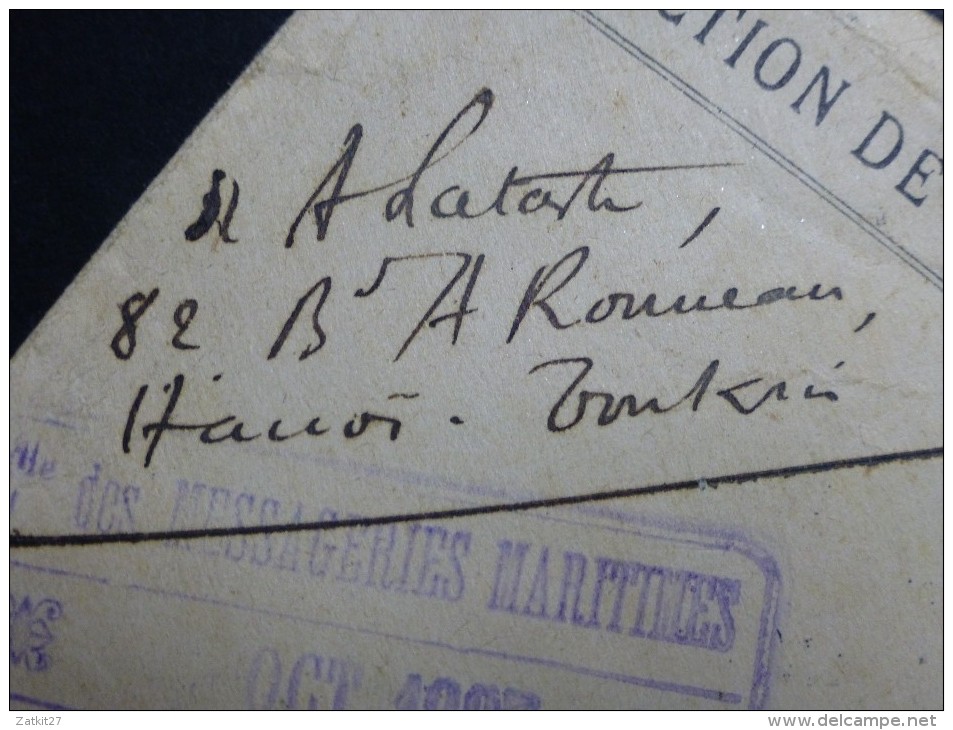 CTION DE
M A Lataste,
82 Bd A Rousseau,
Hanoï - Tonkin
Cie des MESSAGERIES MARITIMES
OCT
Zatkit27
delcampe.net